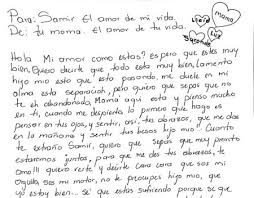 Para: Samir El amor de mi vida.
De: tu mama. El amor de tu vida.
mama
Samir
Hola Mi amor como estas? espero que estes muy
bien, quiero decirte que todo esta muy bien, Lamento
hijo mio esto que esta pasando, me duele en mi
alma esta separación, pero quiero que sepas que no
te eh abandonado, Mama aqui esta y pienso mucho
en ti, cuando me despierto lo primero que hago es
pensar en tus ojos, y sentir, asi, tus abrazos, que me das
en la mañana y sentir tus besos hijo mio! Cuanto
te extraño Samir, quiero que sepas que pronto
estaremos juntas, para que me des tus abrazos, te
amo!!! quiero verte y decirte cara cara que sos mi
orgullo, sos mi motor, no te preocupes hijo mio, que
yo estoy bien... sé que estas sufriendo porque se que